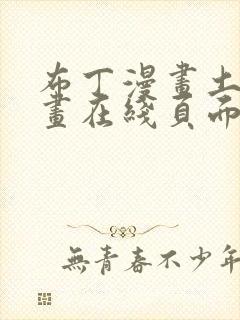 布丁漫畫土
畫在綫頁而
無青春不少年